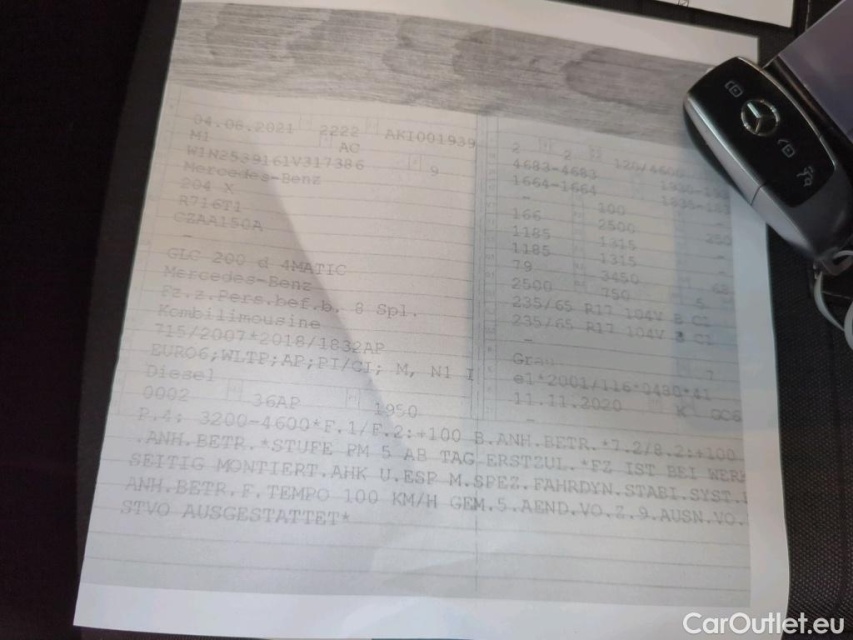 04.06.2021 2222 AKI001939
M1 AC
W1N2539161V317386 9
Mercedes-Benz
204 X
R716T1
CZAA150A
-
GLC 200 d 4MATIC
Mercedes-Benz
Fz.z.Pers.bef.b. 8 Spl.
Kombilimousine
715/2007*2018/1832AP
EURO6;WLTP;AP;PI/CI; M, N1 I
Diesel
0002 36AP 1950
2 2 120/4600
4683-4683
1664-1664
- 100
166 2500
1185 1315
1185 1315
79 3450
2500 750 5
235/65 R17 104V
235/65 R17 104V
-
Grau 7
e1*2001/116*0480*41
11.11.2020 K
P.4: 3200-4600*F.1/F.2:+100 B.ANH.BETR.*7.2/8.2:+100
.ANH.BETR.*STUFE PM 5 AB TAG ERSTZUL.*FZ IST BEI WERK
SEITIG MONTIERT.AHK U.ESP M.SPEZ.FAHRDYN.STABI.SYST.
ANH.BETR.F.TEMPO 100 KM/H GEM.5.AEND.VO.Z.9.AUSN.VO.
STVO AUSGESTATTET*
CarOutlet.eu